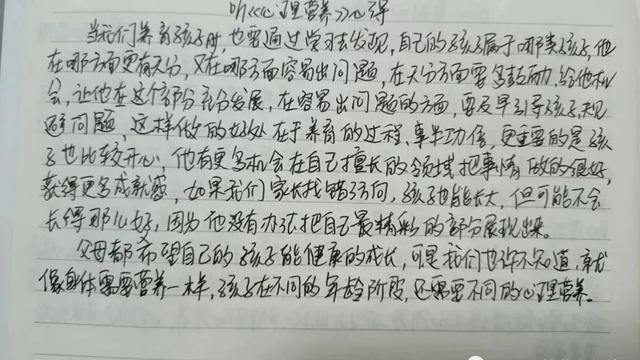 听《心理营养》心得
当我们养育孩子时,也要通过学习去发现,自己的孩子属于哪类孩子,他
在哪方面更有天分,又在哪方面容易出问题,在天分方面要多鼓励,给他机
会,让他在这个部分充分发展,在容易出问题的方面,要及早引导孩子,规
避问题,这样做的好处在于养育的过程,事半功倍,更重要的是孩
子也比较开心,他有更多机会在自己擅长的领域把事情做的很好,
获得更多成就感,如果我们家长找错方向,孩子也能长大,但可能不会
长得那么好,因为他没有办法把自己最精彩的部分展现出来。
父母都希望自己的孩子能健康的成长,可是我们也许不知道,就
像身体需要营养一样,孩子在不同的年龄阶段,还需要不同的心理营养。